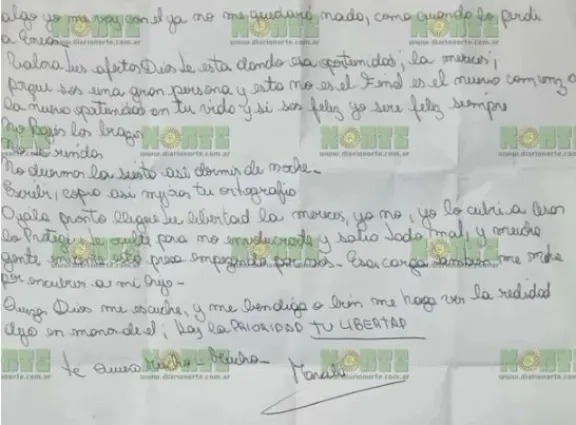 algo yo me voy con el ya no me quedará nada, como cuando los perdi
a
Valora tus afectos Dios te esta dando esa oportunidad, la mereces,
porque sos una gran persona y esta no es el Fin es el nuevo comienzo
la nueva oportunidad en tu vida y si sos feliz yo sere feliz siempre
No Bajes los brazos
No te rindas
No duermas la siesta asi dormir de noche
Escribi, copia asi mejoras tu ortografia
Ojala pronto llegue tu libertad la mereces, yo no, yo lo cubri a
lo Protegi te oculte para no involucrarte y salio todo mal, y mucha
gente esta presa empezando por vos. Esa carga tambien me
por encubrir a mi hijo
Quizas Dios me escuche, y me bendiga o bien me haga ver la realidad
dejo en manos de el, hoy la PRIORIDAD TU LIBERTAD
te quiero mucho - Mucho
Marcela
NORTE
www.diarionorte.com.ar